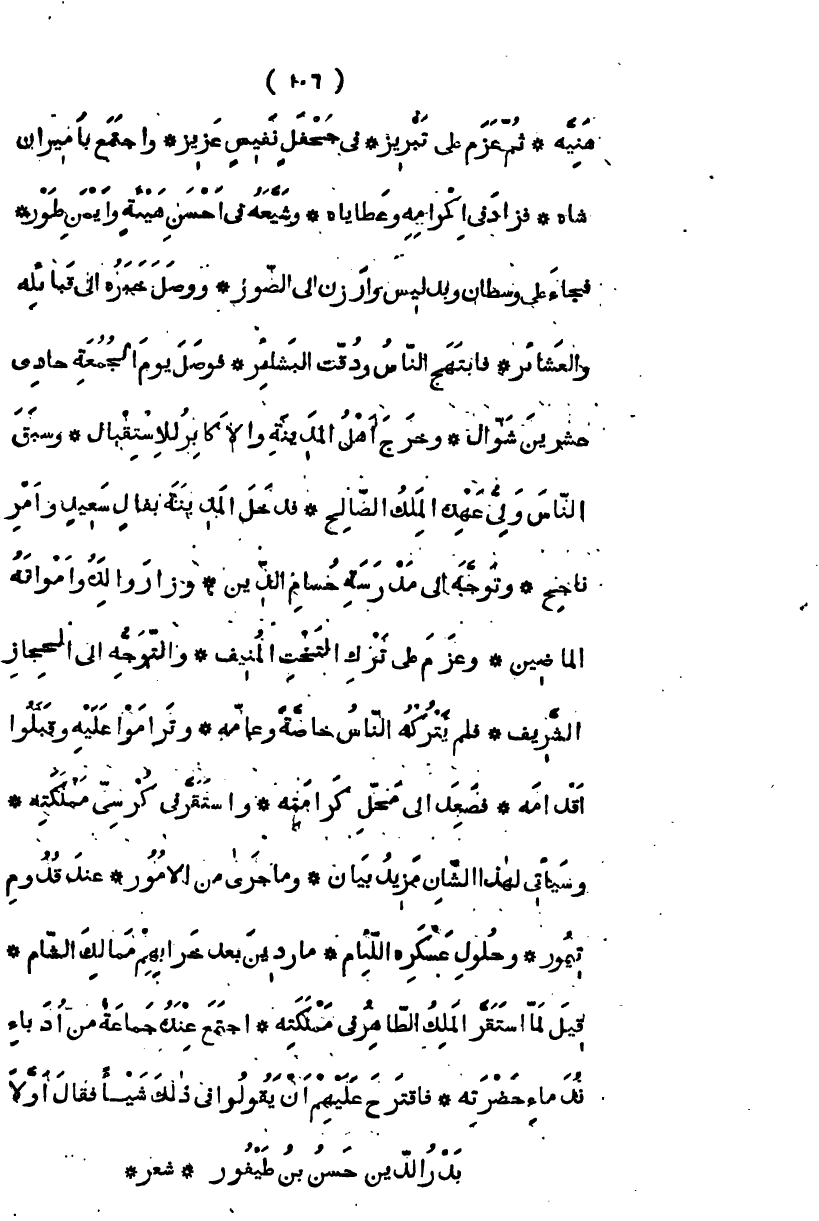 ( ١٠٦ )
هَنِيَّه * ثُمَّ عَزَمَ على تَبْرِيز * فى جَحْفَلٍ نَفِيسٍ عَزِيز * واجتَمَع بأَمِيران
شاه * فزادَ فى اِكْرامِهِ وعَطاياه * وشَيَّعَهُ فى اَحْسَنِ هَيْئَةٍ واَيْمَنِ طَوْر *
فجاءَ على وسطان وبدليس وارزن الى الصَّوْر * ووصَلَ خَبَرُه الى قَبائِلِه
والعَشائر * فابتَهَج النّاسُ ودُقَّت البَشائِر * فوصَلَ يومَ الجُمُعَةِ حادى
عشرينَ شَوّال * وخرَجَ أَهْلُ المَدِينَةِ والاَكابِرُ للاِسْتِقْبال * وسبَقَ
النّاسَ وَلِىُّ عَهْدِه المَلِكُ الصّالِح * فدخَلَ المَدِينَةَ بفالٍ سَعِيدٍ واَمْرٍ
ناجِح * وتَوجَّهَ الى مَدْرَسَةِ حُسامِ الدِّين * وزارَ والِدَهُ واَمْواتَهُ
الماضِين * وعزَمَ على تَرْكِ التَخْتِ المُنِيف * والتَّوَجُّهِ الى الحِجازِ
الشَّرِيف * فلم يَتْرُكْهُ النّاسُ خاصَّةً وعامَّه * وتَرامَوْا عَلَيْهِ وقَبَّلُوا
اَقْدامَه * فصَعِدَ الى مَحَلِّ كَرامَتِه * واستَقَرَّ فى كُرْسِىِّ مَمْلَكَتِه *
وسَيأتى لهٰذا الشَّانِ مَزِيدُ بَيان * وما جَرٰى من الاُمُور * عندَ قُدُومِ
تِيمُور * وحُلُولِ عَسْكَرِه اللِّئام * ماردِينَ بعد خَرابِهِمْ مَمالِكَ الشّام *
قِيلَ لَمّا استَقَرَّ المَلِكُ الظّاهِرُ فى مَمْلَكَتِه * اجتَمَع عِنْدَهُ جَماعَةٌ من اُدَباءِ
نُدَماءِ حَضْرَتِه * فاقتَرَحَ عَلَيْهِمْ اَنْ يَقُولُوا فى ذٰلِكَ شَيْـأً فقالَ اَوَّلاً
بَدْرُ الدّين حَسَنُ بنُ طَيْفُور * شعر *